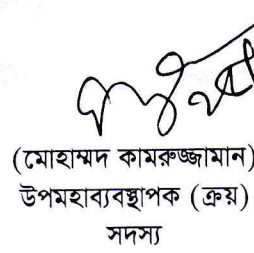 (মোহাম্মদ কামরুজ্জামান)
উপমহাব্যবস্থাপক (ক্রয়)
সদস্য